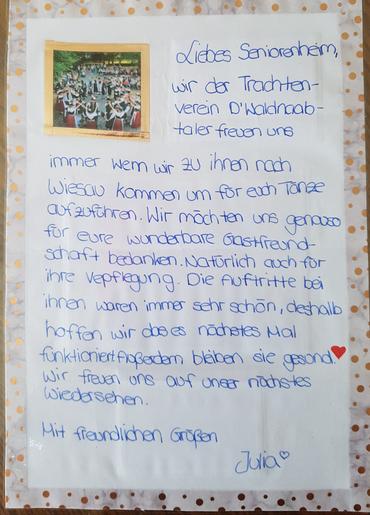 Liebes Seniorenheim,
wir der Trachten-
verein D'Waldnaab-
taler freuen uns
immer wenn wir zu ihnen nach
Wiesau kommen um für euch Tänze
aufzuführen. Wir möchten uns genauso
für eure wunderbare Gastfreund-
schaft bedanken. Natürlich auch für
ihre Vepflegung. Die Auftritte bei
ihnen waren immer sehr schön, deshalb
hoffen wir das es nächstes Mal
funktioniert. Außerdem bleiben sie gesond.
Wir freuen uns auf unser nächstes
Wiedersehen.
Mit freundlichen Grüßen
Julia